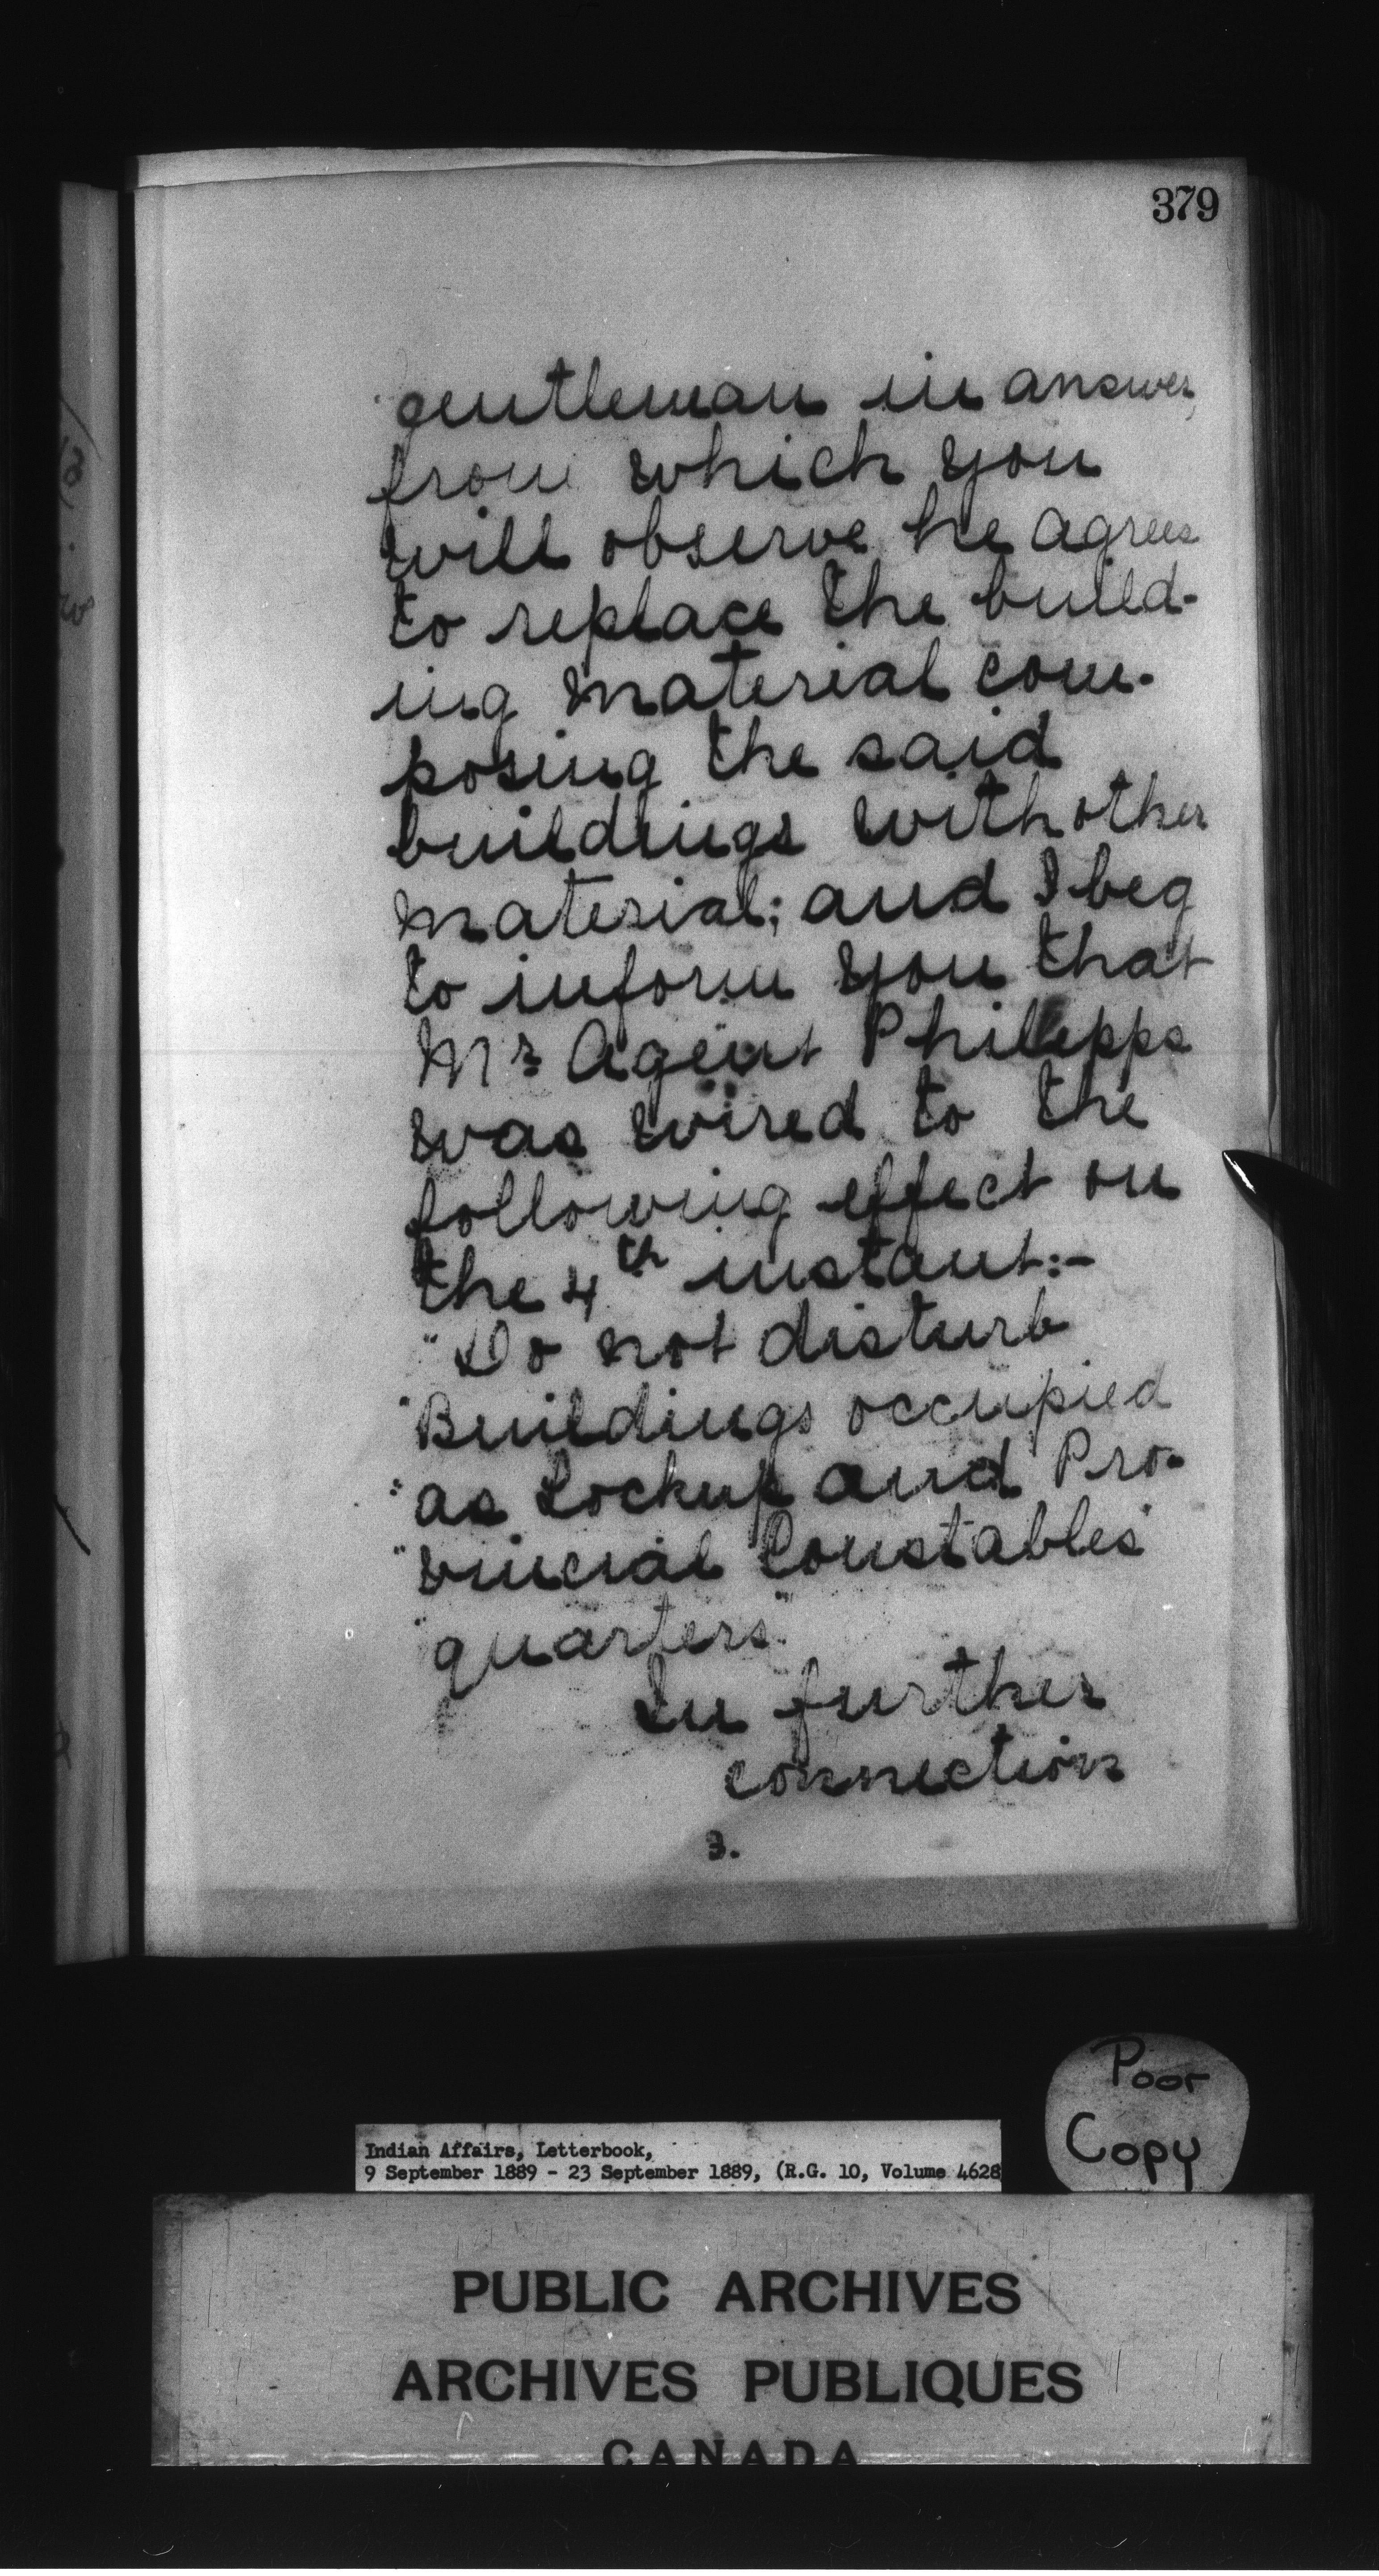 379
gentleman in answer,
from which you
will observe he agrees
to replace the build-
ing material com-
posing the said
buildings with other
material; and I beg
to inform you that
Mr Agent Phillipps
was wired to the
following effect on
the 4th instant:-
"Do not disturb
"Buildings occupied
"as Lockup and Pro-
"vincial Constables'
"quarters."
In further
connection
3.
Poor
Copy
Indian Affairs, Letterbook,
9 September 1889 - 23 September 1889, (R.G. 10, Volume 4628
PUBLIC ARCHIVES
ARCHIVES PUBLIQUES
CANADA